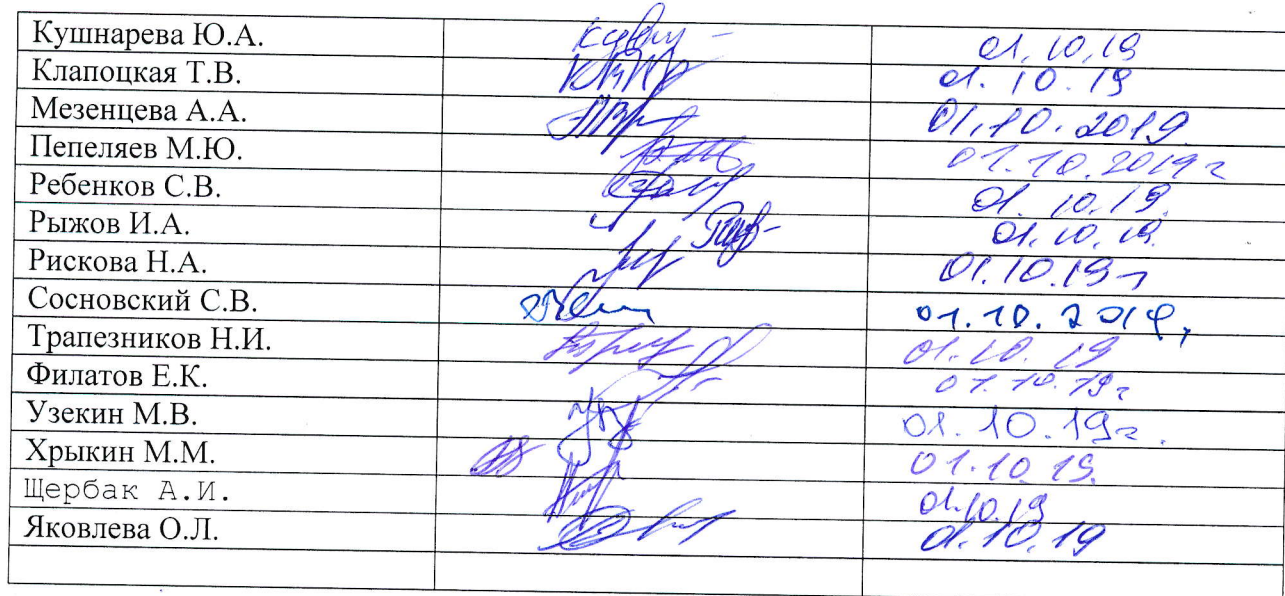 Кушнарева Ю.А. 01.10.19
Клапоцкая Т.В. 01.10.19
Мезенцева А.А. 01.10.2019
Пепеляев М.Ю. 01.10.2019г
Ребенков С.В. 01.10.19.
Рыжов И.А. 01.10.19.
Рискова Н.А. 01.10.19г
Сосновский С.В. 01.10.2019,
Трапезников Н.И. 01.10.19
Филатов Е.К. 01.10.19г
Узекин М.В. 01.10.19г.
Хрыкин М.М. 01.10.19.
Щербак А.И. 01.10.19
Яковлева О.Л. 01.10.19